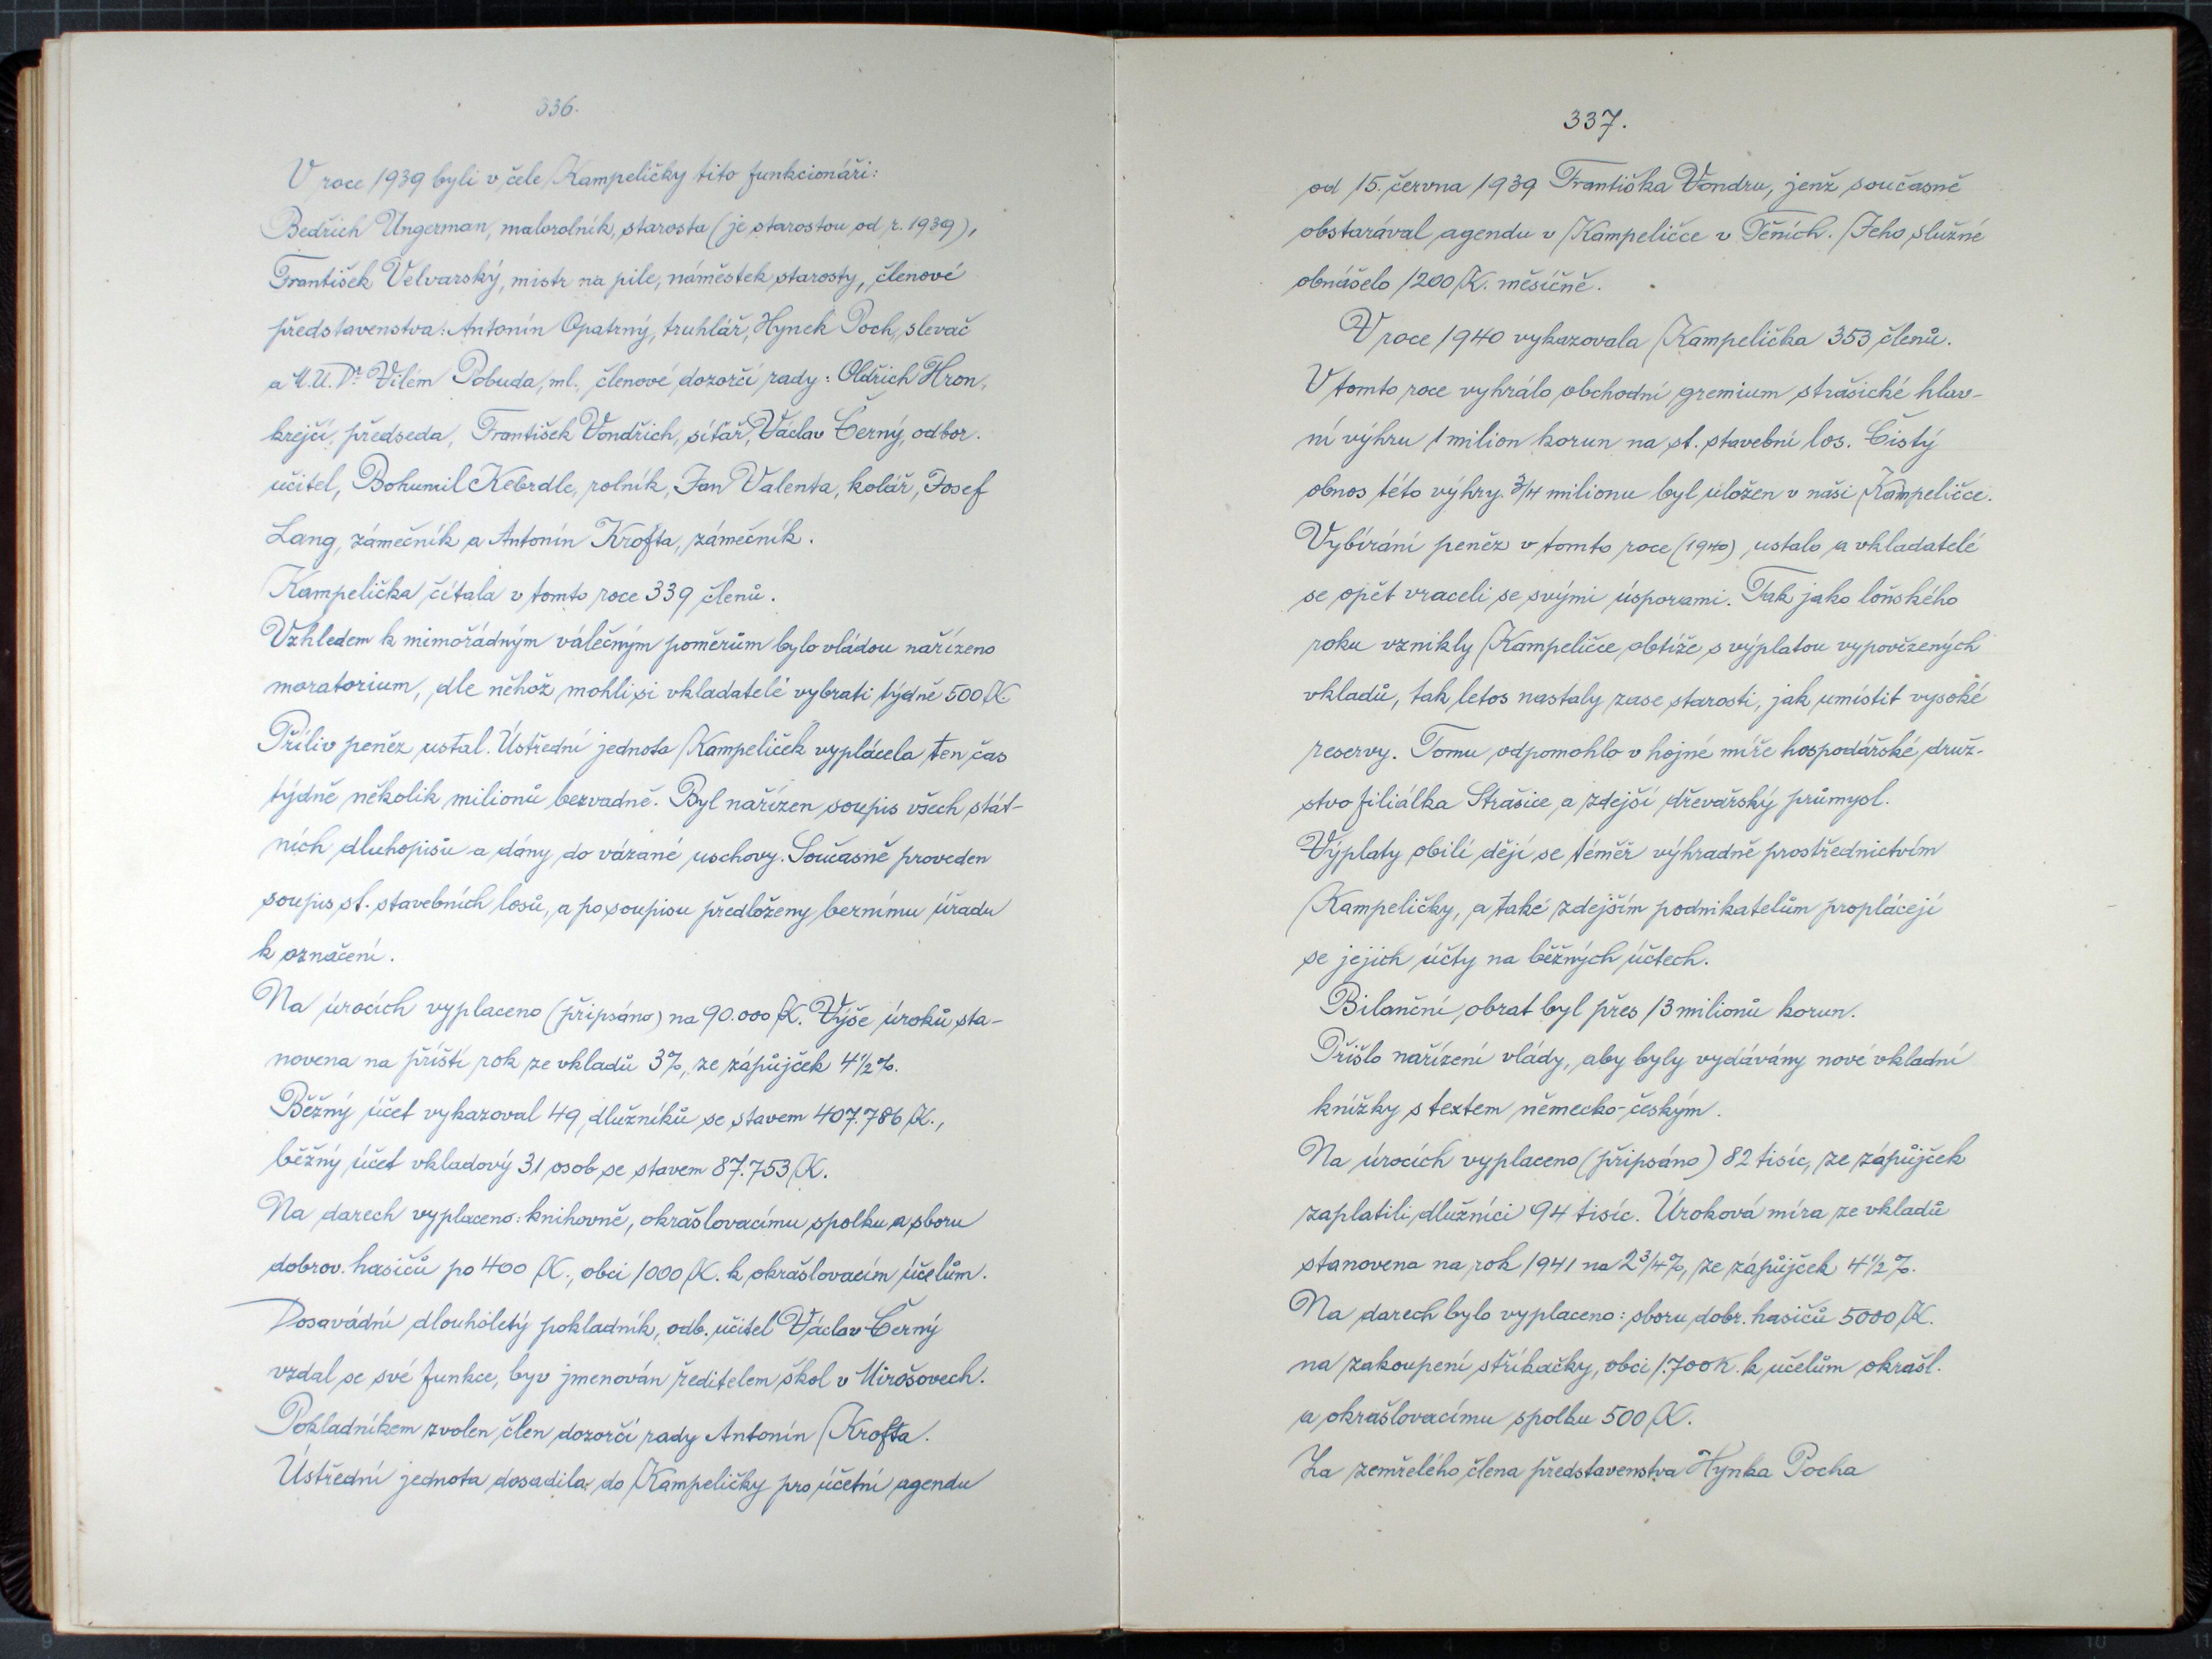 336.
V roce 1939 byli v čele Kampeličky tito funkcionáři:
Bedřich Ungerman, malorolník, starosta (je starostou od r. 1939),
František Velvarský, mistr na pile, náměstek starosty, členové
představenstva: Antonín Opatrný, truhlář, Hynek Poch, slevač
a M.U.Dr Vilém Pobuda, ml., členové dozorčí rady: Oldřich Hron,
krejčí, předseda, František Vondřich, síťař, Václav Černý, odbor.
učitel, Bohumil Kebrdle, rolník, Jan Valenta, kolář, Josef
Lang, zámečník a Antonín Krofta, zámečník.
Kampelička čítala v tomto roce 339 členů.
Vzhledem k mimořádným válečným poměrům bylo vládou nařízeno
moratorium, dle něhož mohli si vkladatelé vybrati týdně 500 K
Příliv peněz ustal. Ústřední jednota Kampeliček vyplácela ten čas
týdně několik milionů bezvadně. Byl nařízen soupis všech stát-
ních dluhopisů a dány do vázané uschovy. Současně proveden
soupis st. stavebních losů, a po soupisu předloženy bernímu úřadu
k označení.
Na úrocích vyplaceno (připsáno) na 90.000 K. Výše úroků sta-
novena na příští rok ze vkladů 3%, ze zápůjček 4 1/2 %.
Běžný účet vykazoval 49 dlužníků se stavem 407.786 K.,
běžný účet vkladový 31 osob se stavem 87.753 K.
Na darech vyplaceno: knihovně, okrašlovacímu spolku a sboru
dobrov. hasičů po 400 K., obci 1000 K. k okrašlovacím účelům.
Dosavádní dlouholetý pokladník, odb. učitel Václav Černý
vzdal se své funkce, byv jmenován ředitelem škol v Mirošovech.
Pokladníkem zvolen člen dozorčí rady Antonín Krofta.
Ústřední jednota dosadila do Kampeličky pro účetní agendu
337.
od 15. června 1939 Františka Vondru, jenž současně
obstarával agendu v Kampeličce v Těních. Jeho služné
obnášelo 1200 K. měsíčně.
V roce 1940 vykazovala Kampelička 353 členů.
V tomto roce vyhrálo obchodní gremium strašické hlav-
ní výhru 1 milion korun na st. stavební los. Čistý
obnos této výhry 3/4 milionu byl uložen v naší Kampeličce.
Vybírání peněz v tomto roce (1940) ustalo a vkladatelé
se opět vraceli se svými úsporami. Tak jako loňského
roku vznikly Kampeličce obtíže s výplatou vypovězených
vkladů, tak letos nastaly zase starosti, jak umístit vysoké
reservy. Tomu odpomohlo v hojné míře hospodářské druž-
stvo filiálka Strašice a zdejší dřevařský průmysl.
Výplaty obilí dějí se téměř výhradně prostřednictvím
Kampeličky, a také zdejším podnikatelům proplácejí
se jejich účty na běžných účtech.
Bilanční obrat byl přes 13 milionů korun.
Přišlo nařízení vlády, aby byly vydávány nové vkladní
knížky s textem německo-českým.
Na úrocích vyplaceno (připsáno) 82 tisíc, ze zápůjček
zaplatili dlužníci 94 tisíc. Úroková míra ze vkladů
stanovena na rok 1941 na 2 3/4 %, ze zápůjček 4 1/2 %.
Na darech bylo vyplaceno: sboru dobr. hasičů 5000 K.
na zakoupení stříkačky, obci 1.700 K. k učelům okrašl.
a okrašlovacímu spolku 500 K.
Za zemřelého člena představenstva Hynka Pocha